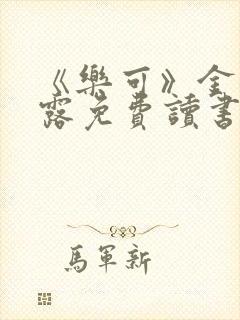 《樂可》金
露免費讀書
馬軍新